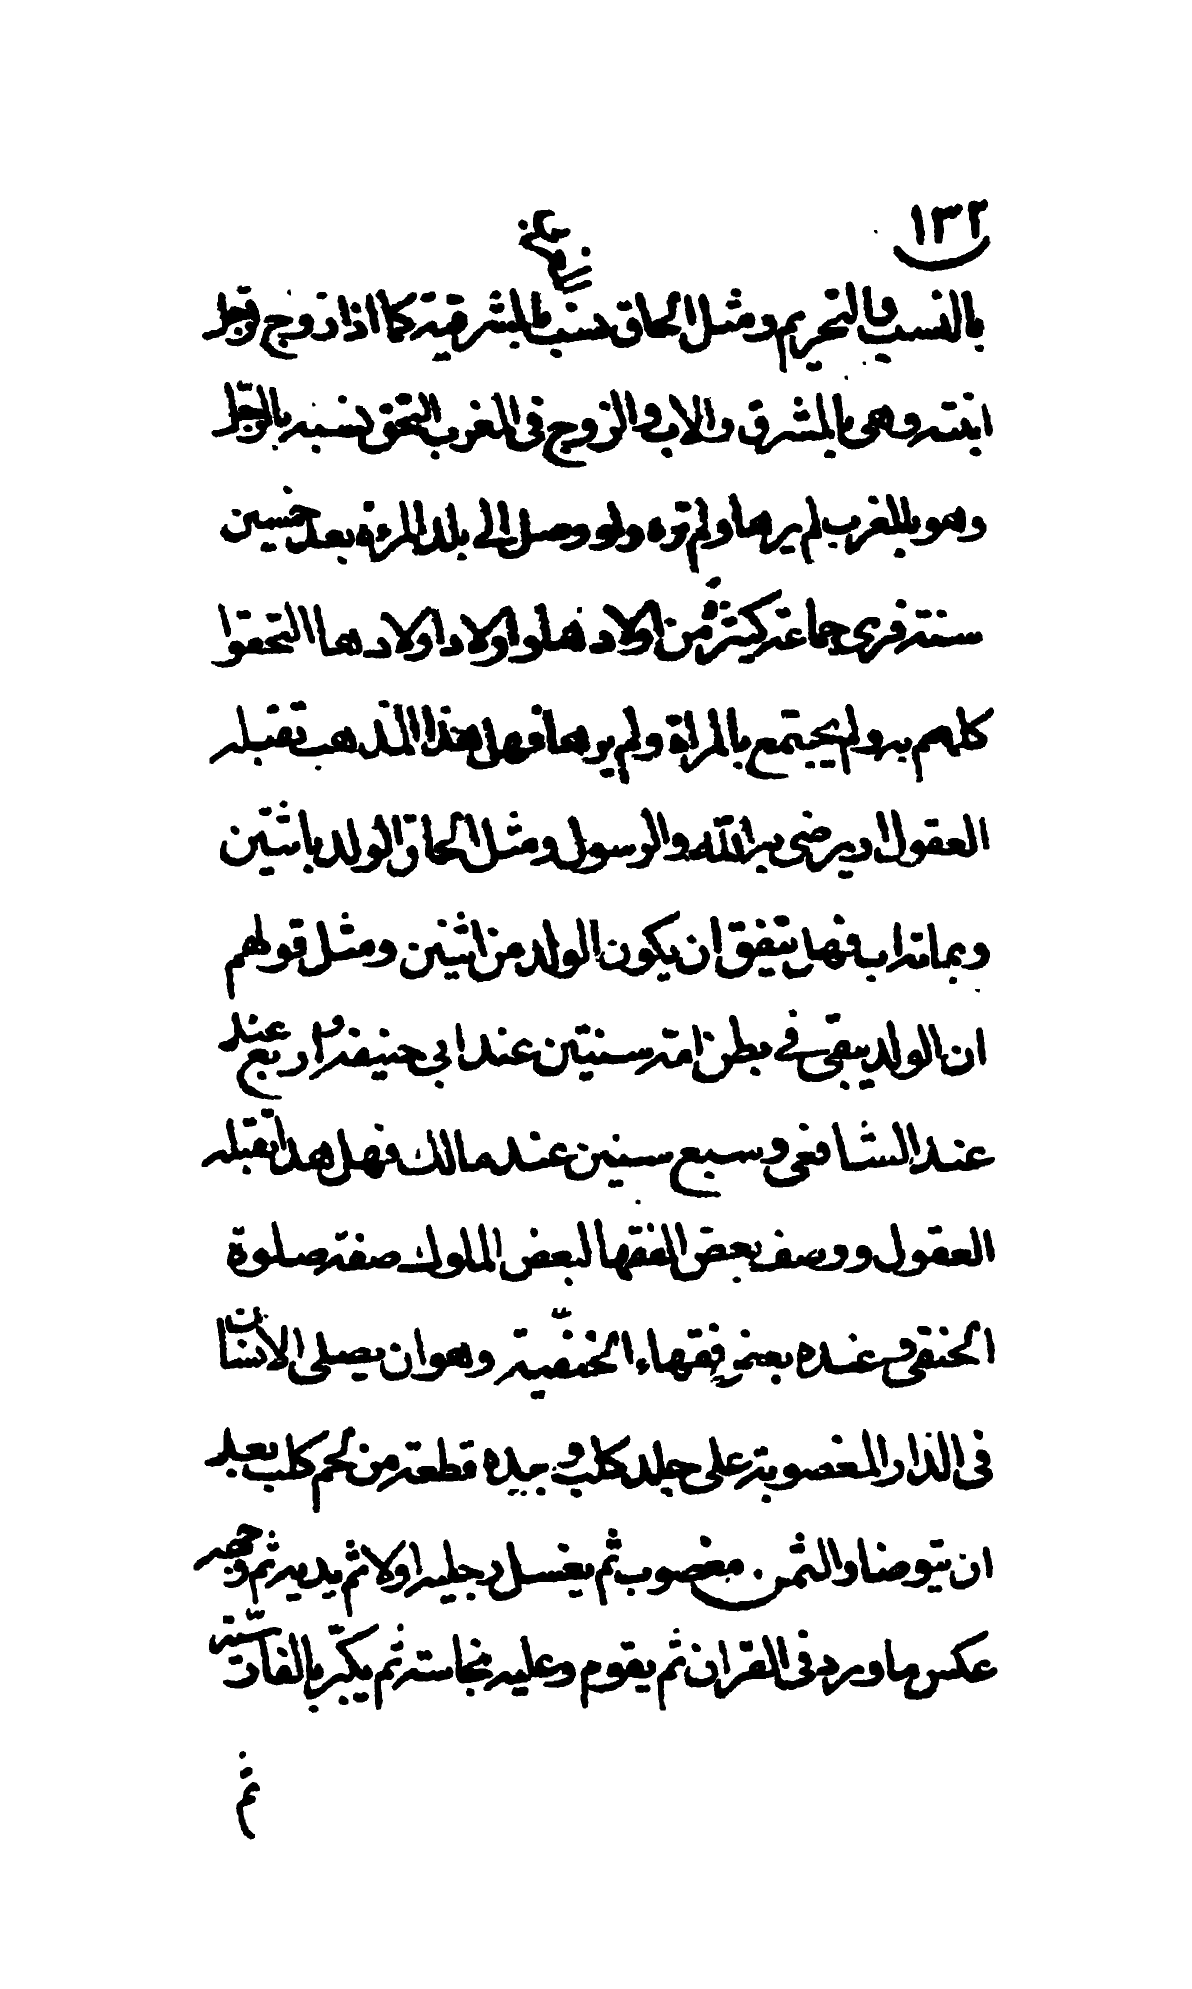 ١٣٢
بالنسب والتحريم ومثل الحاق نسب المشرقية كما اذا زوج رجل
ابنته وهى بالمشرق والاب والزوج فى المغرب التحق نسبه بالرجل
وهو بالمغرب لم يرها ولم تره ولو وصل الى بلد المرئة بعد خمسين
سنته فرى جماعة كثيرة من اولادها واولاد اولادها التحقوا
كلهم به ولم يجتمع بالمراة ولم يرها فهل هذا المذهب تقبله
العقول او يرضى به الله والرسول ومثل الحاق الولد باثنين
وبماته اب فهل يتفق ان يكون الولد من اثنين ومثل قولهم
ان الولد يبقى فى بطن امه سنتين عند ابي حنيفه واربع عند
عند الشافعى وسبع سنين عند مالك فهل هذا تقبله
العقول ووصف بعض الفقها لبعض الملوك صفة صلوة
الحنفى وعنده بعض فقهاء الحنفية وهو ان يصلى الانسان
فى الدار المغصوبة على جلد كلب وبيده قطعة من لحم كلب بعد
ان يتوضا والثمن مغصوب ثم يغسل رجليه اولا ثم يديه ثم وجهه
عكس ما ورد فى القران ثم يقوم وعليه نجاسته ثم يكبر بالفارسية
ثم